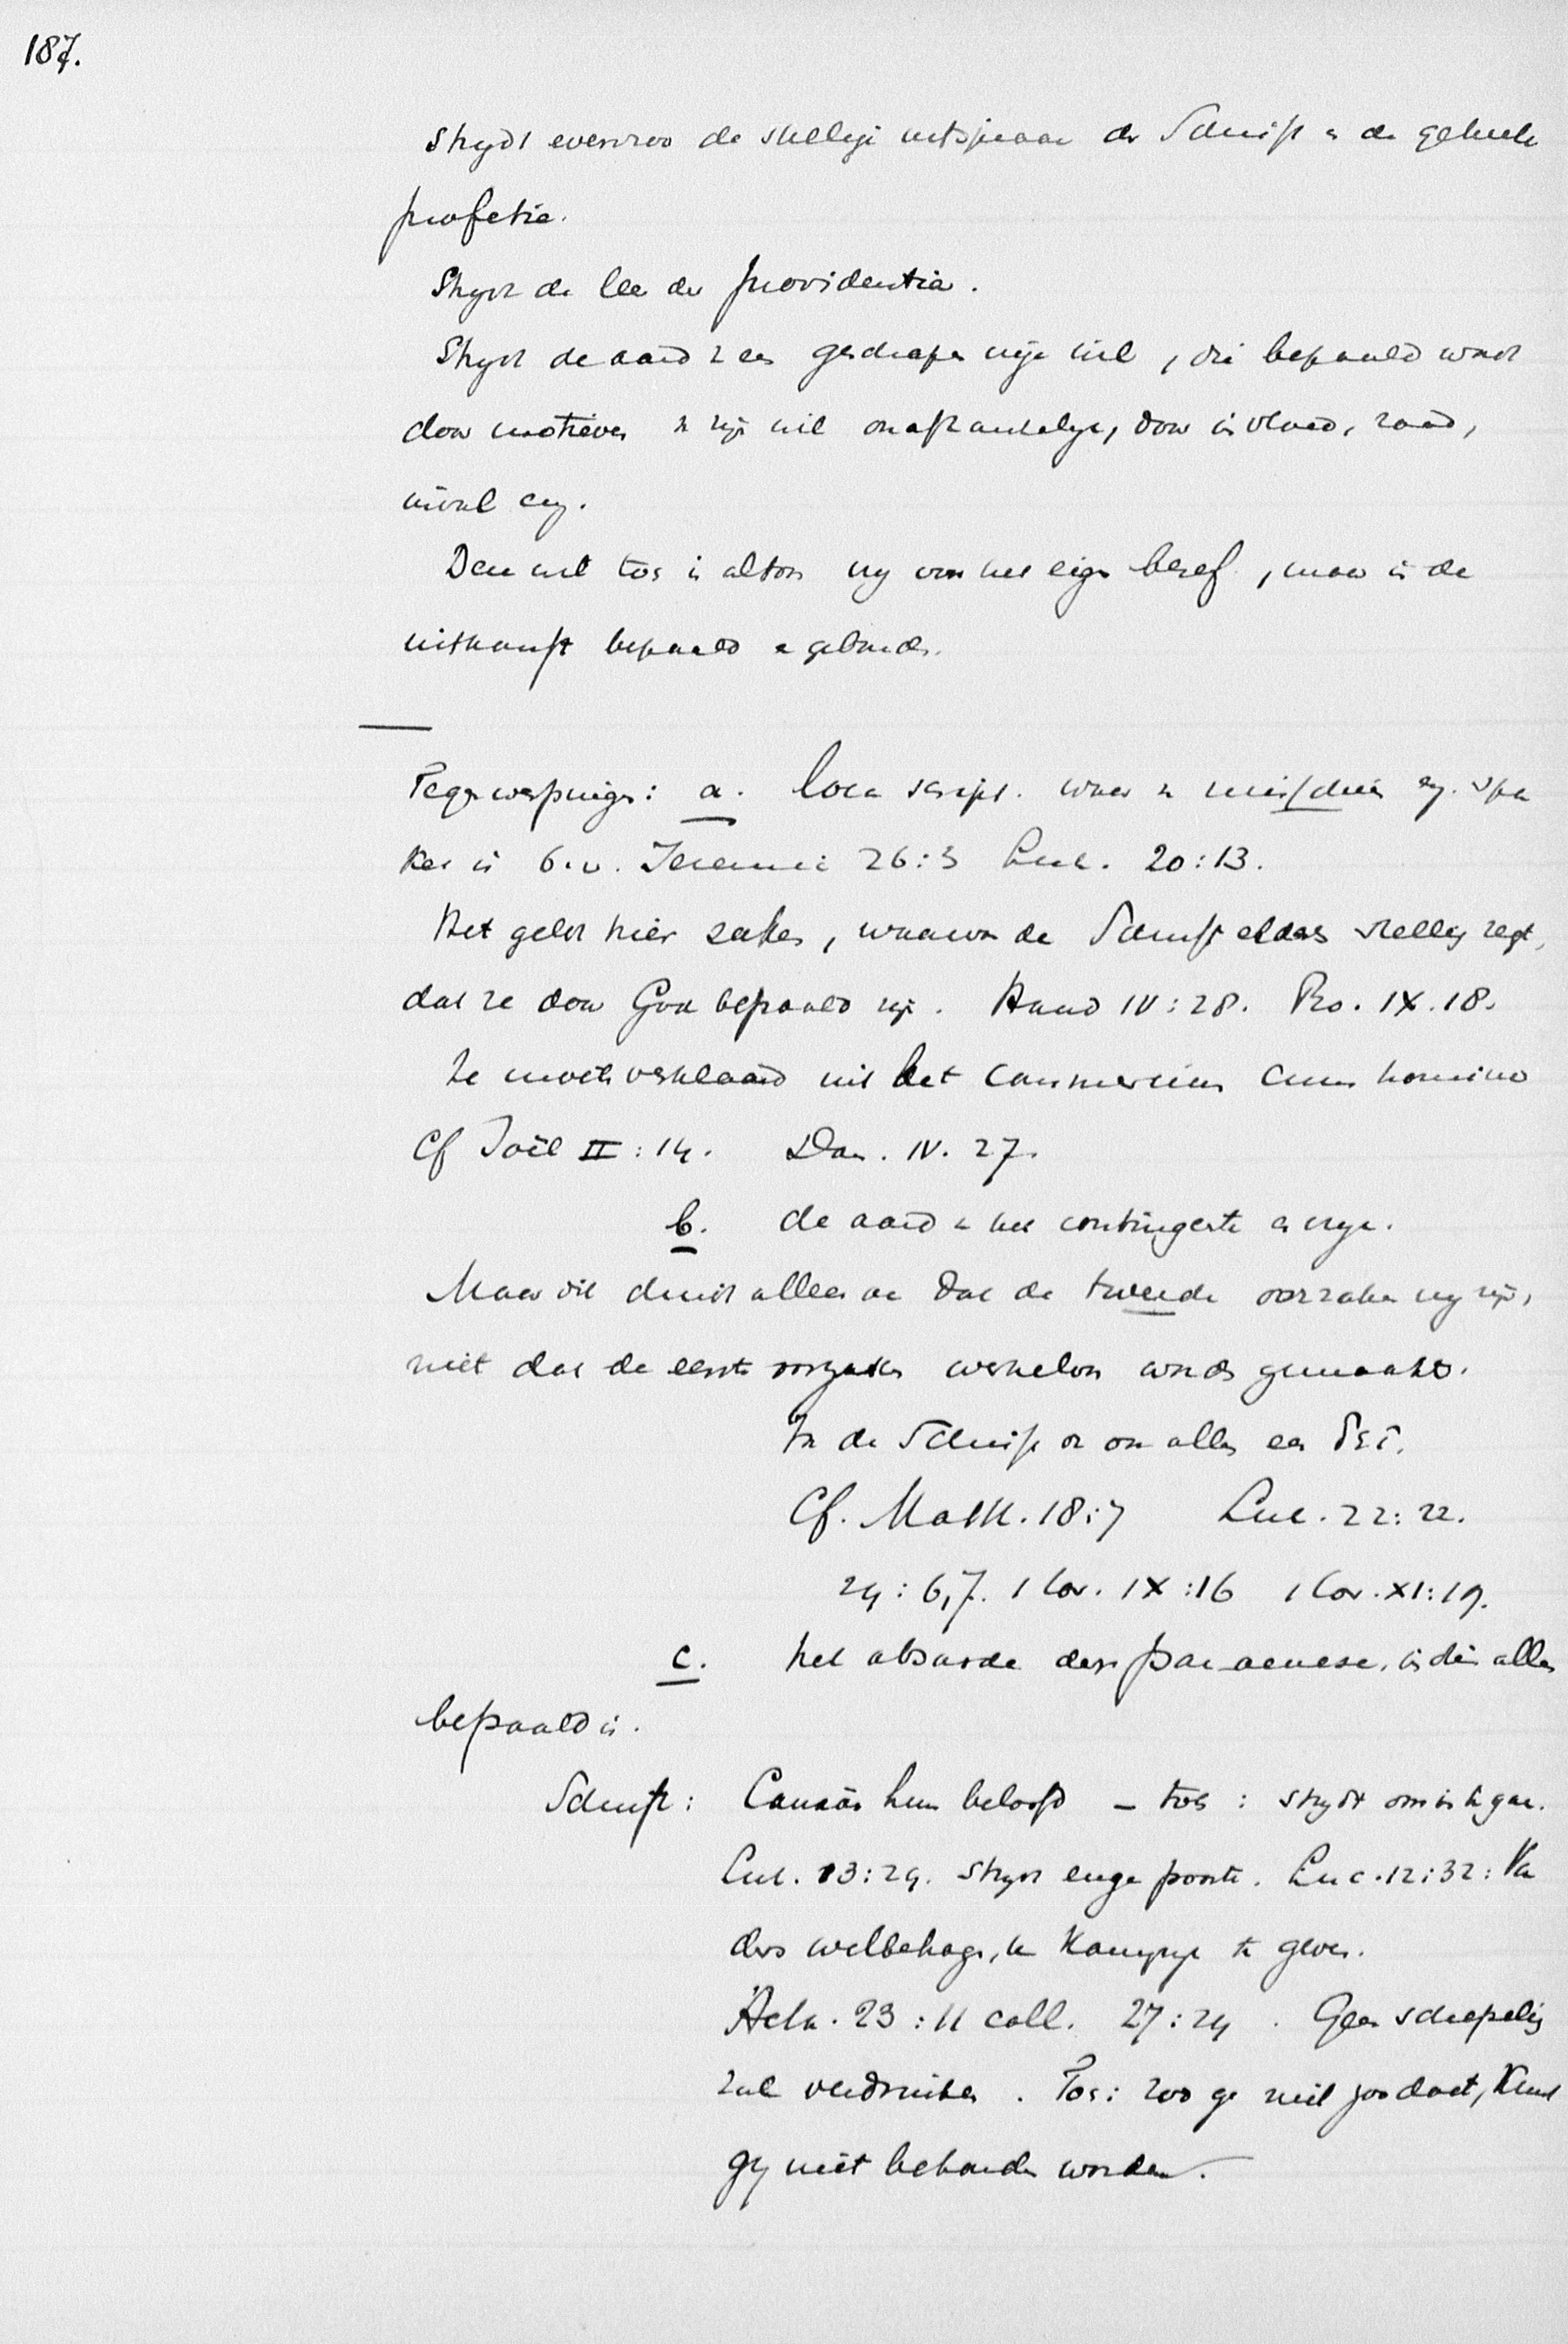 187.
strydt evenzoo de stellige uitspraak der Schrift & de geheele
profetie.
Strydt de leer der providentia.
Strydt de aard v een geschapen vrije wil, die bepaald wordt
door motieven v zijn wil onafhankelyk, door invloed, raad,
enz.
Deze wil toch is altoos vry voor het eigen besef, maar in de
uitkomst bepaald & gebonden.
Tegenwerpingen: a. loca script. waar v misschien enz. spra
ke is b.v. Jeremia 26:3 Luc. 20:13.
Het geldt hier zaken, waarvan de Schrift elders stellig zegt,
dat ze door God bepaald zijn. Hand IV:28. Ro. IX.18.
Ze moeten verklaard uit het commercium cum homine
Cf Joël II:14. Dan. IV. 27.
b. de aard v het contingente en vrye.
Maar dit duidt alleen aan dat de tweede oorzaken vry zijn,
niet dat de eerste oorzaken werkeloos wordt gemaakt.
In de Schrift is van alles een δεῖ.
Cf. Matth. 18:7 Luc. 22:22.
24:6,7. 1 Cor. IX:16 1 Cor. XI:19.
c. het absurde der paraenese, indien alles
bepaald is.
Schrift: Canaän hun beloofd – toch: strydt om in te gaan.
Luc. 13:24. Strydt enge poorte. Luc. 12:32: Va
ders welbehagen, u Koningryk te geven.
Acta. 23:11 coll. 27:24. Geen schepeling
zal verdrinken. Toch: zoo ge niet zoo doet, Kunt
gy niet behouden worden.